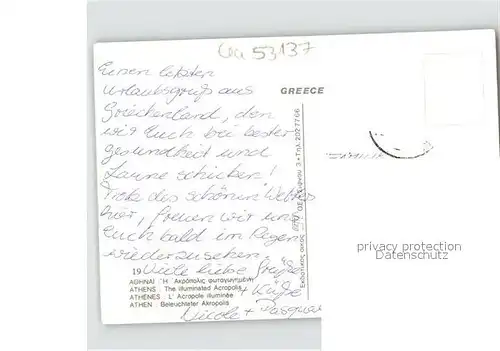 Gu 53137
Einen letzten
Urlaubsgruß aus
Griechenland, den
wir Euch bei bester
Gesundheit und
Laune schicken!
Trotz des schönen Wetters
hier, freuen wir uns
Euch bald im Regen
wiederzusehen.
Viele liebe Grüße
+ Küße
Nicole + Pasqual
GREECE
3•Τηλ:2027766
Εκδοτικός οίκος
19
ΑΘΗΝΑΙ : Ἡ Ἀκρόπολις φωταγωγημένη
ATHENS : The illuminated Acropolis
ATHENES : L' Acropole illuminée
ATHEN : Beleuchteter Akropolis
privacy protection
Watermark